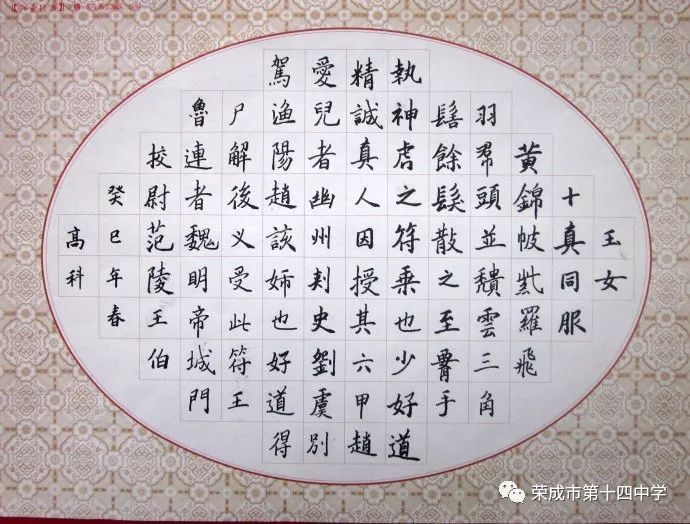 玉女
十真同服
黃錦帔紫羅飛
羽帬頭並穨雲三角
髻餘髮散之至臂手
執神虎之符乘也少好道
精誠真人因授其六甲趙
愛兒者幽州刾史劉虞別
駕渔陽趙該姉也好道得
尸解後又受此符王
魯連者魏明帝城門
挍尉范陵王伯
癸巳年春
高科
荣成市第十四中学